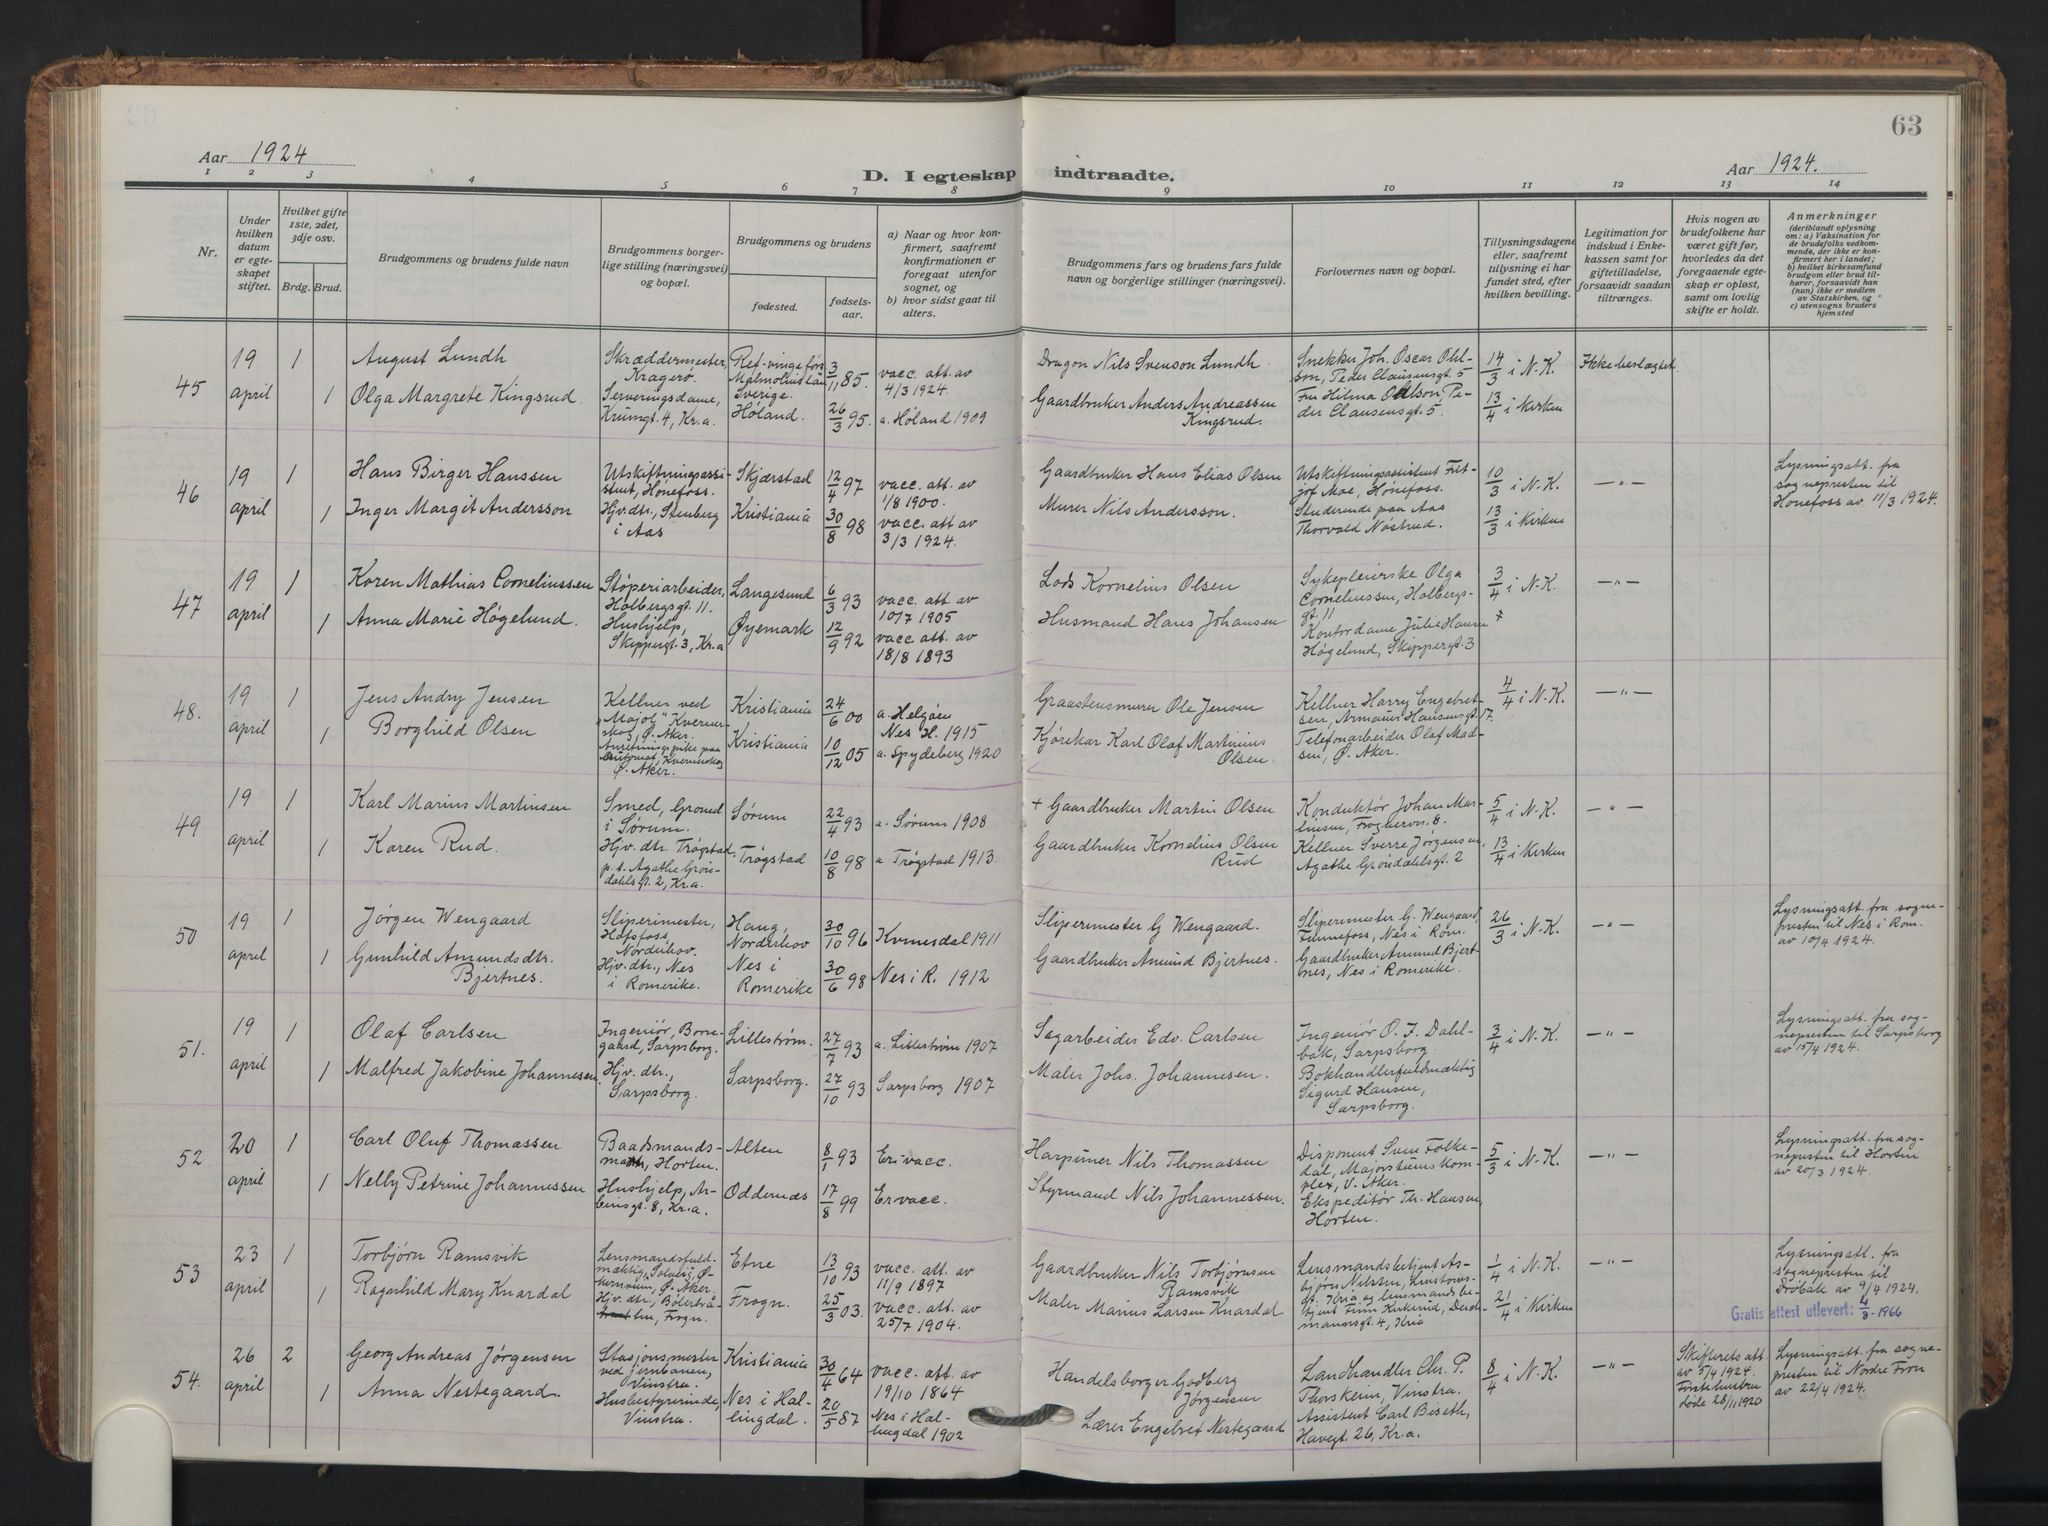 63
Aar 1924
D. I egteskap indtraadte.
Aar 1924.
1 2 3 4 5 6 7 8 9 10 11 12 13 14
Nr.
Under hvilken datum er egteskapet stiftet.
Hvilket gifte 1ste, 2det, 3dje osv.
Brdg. Brud.
Brudgommens og brudens fulde navn
Brudgommens borgerlige stilling (næringsvei) og bopæl.
Brudgommens og brudens
fødested.
fødselsaar.
a) Naar og hvor konfirmert, saafremt konfirmationen er foregaat utenfor sognet, og
b) hvor sidst gaat til alters.
Brudgommens fars og brudens fars fulde navn og borgerlige stillinger (næringsvei).
Forlovernes navn og bopæl.
Tillysningsdagene eller, saafremt tillysning ei har fundet sted, efter hvilken bevilling.
Legitimation for indskud i Enkekassen samt for giftetilladelse, forsaavidt saadan tiltrænges.
Hvis nogen av brudefolkene har været gift før, hvorledes da det foregaaende egteskap er opløst, samt om lovlig skifte er holdt.
Anmerkninger (deriblandt oplysning om: a) Vaksination for de brudefolks vedkommende, der ikke er konfirmert her i landet; b) hvilket kirkesamfund brudgom eller brud tilhører, forsaavidt han (hun) ikke er medlem av Statskirken, og c) utensogns bruders hjemsted
45 19 april 1 August Lundh
Skræddermester, Kragerø.
Malmöhus län Sverige
3/11 85.
vacc. att. av 4/3 1924.
Dragon Nils Svenson Lundh
Snekker Joh. Oscar Ohlson, Peder Claussensgt. 5
14/3 i N.K.
Ikke beslægtet
1 Olga Margrete Kingsrud.
Serveringsdame, Krumgt. 4, Kr.a
Høland.
26/3 95.
a. Høland 1909
Gaardbruker Anders Andreassen Kingsrud.
Fru Hilma Ohlson, Peder Clausensgt. 5.
13/4 i Kirken
46 19 april 1 Hans Birger Hanssen
Utskiftningsassistent, Hønefoss.
Skjerstad
12/4 97
vacc. att. av 1/8 1900.
Gaardbruker Hans Elias Olsen
Utskiftningsassistent Fritjof Moe, Hønefoss.
10/3 i N.K.
—"—
Lysningsatt. fra sognepresten til Hønefoss av 11/3 1924.
1 Inger Margit Andersson
Hjv. dtr., Stenberg i Aas
Kristiania
30/8 98
vacc. att av 3/3 1924.
Murer Nils Andersson.
Studerende paa Aas Thorvald Nøstrud.
13/3 i Kirken
47 19 april 1 Karen Mathias Corneliussen
Støperiarbeider, Holbergsgt. 11.
Langesund
6/3 93
vacc. att. av 10/7 1905
Lods Kornelius Olsen
Sykepleierske Olga Corneliussen, Holbergsgt. 11
3/4 i N.K.
—"—
1 Anna Marie Høgelund.
Hushjelp, Skippergt. 3, Kr.a
Øyemark
12/9 92
vacc. att. av 18/8 1893
Husmand Hans Johansen
Kontordame Julie Hansen Høgelund, Skippergt. 3
48. 19 april 1 Jens Andry Jensen
Kellner ved "Majol" Kvernerskog, Ø. Aker.
Kristiania
24/6 00
a. Helgøen Nes H. 1915
Graastensmurer Ole Jensen
Kellner Harry Engebretsen, Armauer Hansensgt. 17.
4/4 i N.K.
—"—
1 Borghild Olsen
Anretningspike paa Automat, Kvernerskog Ø. Aker.
Kristiania
10/12 05
a. Spydeberg 1920
Kjørekar Karl Olaf Martinius Olsen.
Telefonarbeider Olaf Madsen, Ø. Aker.
49 19 april 1 Karl Marius Martinsen
Smed, i Sørum.
Sørum
22/4 93
a. Sørum 1908
+ Gaardbruker Martin Olsen
Konduktør Johan Martinsen, Frognervn. 8.
5/4 i N.K.
—"—
1 Karen Rud.
Hjv. dtr. Trøgstad. p.t. Agathe Grøndahlsgt. 2, Kr.a.
Trøgstad
10/8 98
a Trøgstad 1913.
Gaardbruker Kornelius Olsen Rud
Kellner Sverre Jørgensen, Agathe Grøndahlsgt. 2
13/4 i Kirken
50 19 april 1 Jørgen Wengaard
Sliperimester, Hofsfoss, Norderhov
Haug, Norderhov
30/10 96
Kvinesdal 1911
Slipermester G Wengaard.
Slipermester G. Wengaard Funnefoss, Nes i Rom.
26/3 i N.K.
—"—
Lysningsatt. fra sognepresten til Nes i Rom. av 10/4 1924.
1 Gunhild Amundsdtr. Bjertnes.
Hjv. dtr., Nes i Romerike.
Nes i Romerike
30/6 98
Nes i R. 1912
Gaardbruker Amund Bjertnes.
Gaardbruker Amund Bjertnes, Nes i Romerike.
51. 19 april 1 Olaf Carlsen
Ingeniør, Borregaard, Sarpsborg.
Lillestrøm.
27/7 93
a. Lillestrøm 1907
Sagarbeider Edv. Carlsen
Ingeniør O. F. Dahlbak, Sarpsborg
3/4 i N.K.
—"—
Lysningsatt. fra sognepresten til Sarpsborg av 15/4 1924.
1 Malfred Jakobine Johannesen.
Hjv. dtr., Sarpsborg.
Sarpsborg.
27/10 93
Sarpsborg 1907
Maler Johs. Johannesen.
Bokhandlerfuldmæktig Sigurd Hansen, Sarpsborg.
52 20 april 1 Carl Oluf Thomassen
Baadsmandsmath, Horten.
Alten
8/1 93
Er vacc.
Harpuner Nils Thomassen
Disponent Sven Folkedal, Majorstuens kompleX, V. Aker.
5/3 i N.K.
—"—
Lysningsatt. fra sognepresten til Horten av 20/3 1924.
1 Nelly Petrine Johannessen
Hushjelp, Arbinsgt. 8, Kr.a.
Oddernes
17/8 99
Er vacc.
Styrmand Nils Johannessen.
Ekspeditør Th. Hansen, Horten.
53 23 april 1 Torbjørn Ramsvik
Lensmandsfuldmæktig, Solveig, Ø. Aker
Etne
13/10 93
vacc. att. av 11/9 1897
Gaardbruker Nils Torbjørnsen Ramsvik
Lensmandsbetjent Asbjørn Nilssen, Kria og lensmandsbetjent Finn Kirkerud, Kria
1/4 i N.K.
—"—
Lysningsatt. fra sognepresten til Drøbak av 9/4 1924.
Gratis attest utlevert: 4/8-1966
1 Ragnhild Mary Knardal
Hjv. dtr., Frogn.
Frogn.
25/3 03.
vacc. att. av 25/7 1904.
Maler Marius Larsen Knardal
21/4 i Kirken
54. 26 april 2 Georg Andreas Jørgensen
Stasjonsmester ved jernbanen, Vinstra.
Kristiania
30/4 64
vacc. att. av 19/10 1864
Handelsborger Godberg Jørgensen
Landhandler Chr. P. Thorsheim, Vinstra.
8/4 i N.K.
—"—
Skifterets att av 5/4 1924. Første hustru døde 28/11 1920
Lysningsatt. fra sognepresten til Nordre Fron av 22/4 1924.
1 Anna Nestegaard.
Husbestyrerinde, Vinstra.
Nes i Hallingdal.
20/5 87
Nes i Hallingdal 1902
Lærer Engebret Nestegaard
Assistent Carl Biseth, Havegt. 26, Kr.a.